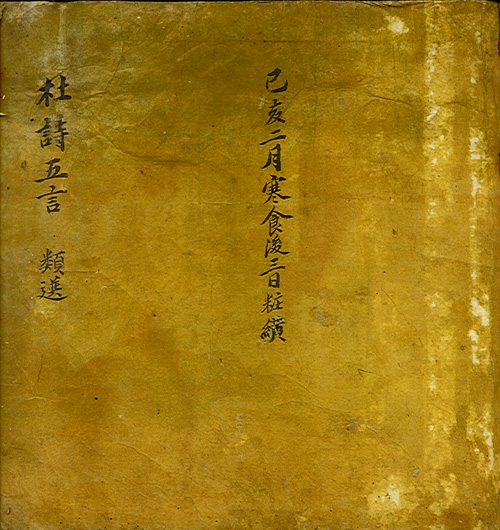 己亥二月寒食後三日粧䌙
杜詩五言 類選